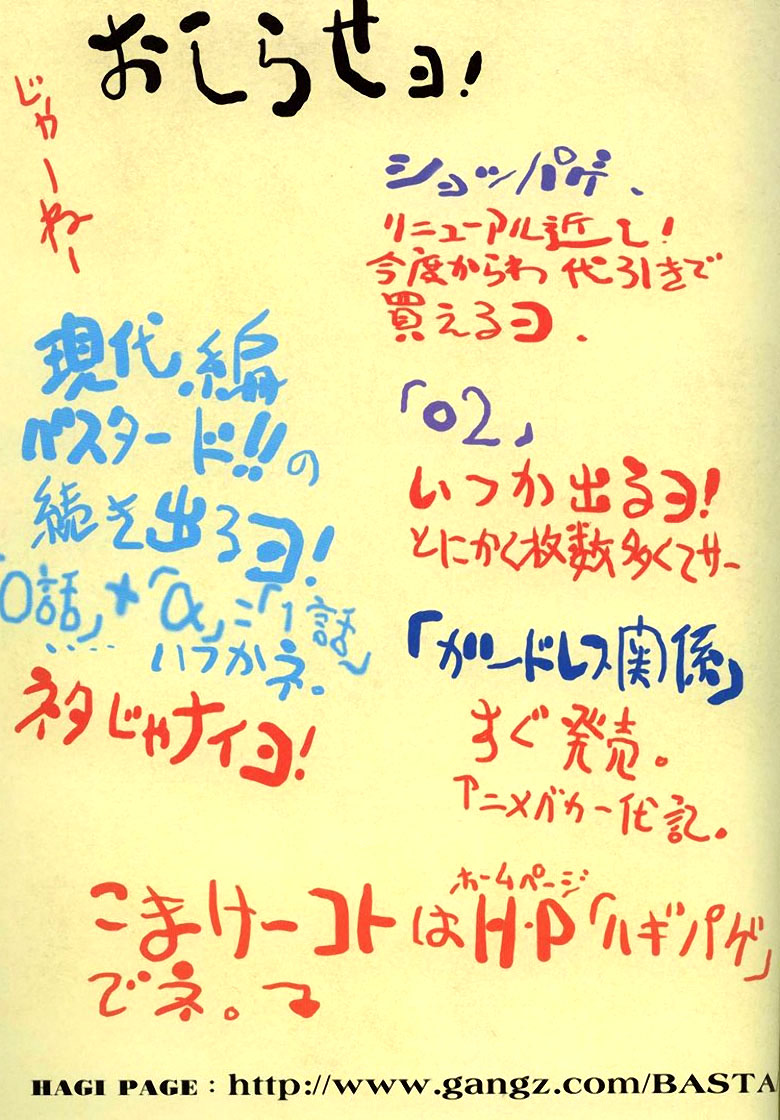 おしらせヨ!
ショッパゲ、
リニューアル近し!
今度からわ 代引きで
買えるヨ.
「02」
いつか出るヨ!
とにかく枚数多くてサー
「ガードレス関係」
すぐ発売。
アニメバカ一代記。
現代編
バスタード!!の
続き出るヨ!
「0話」+「α」=「1話」
‥‥いつかネ。
ネタじゃナイヨ!
こまけーコトはH・P「ハギパゲ」
ホームページ
でネ。
じゃーねー
HAGI PAGE : http://www.gangz.com/BASTA